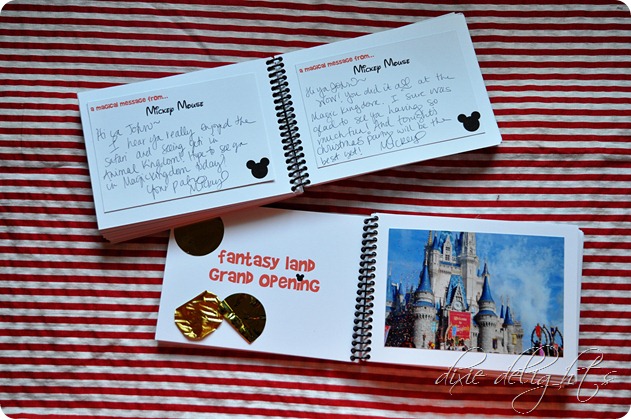 a magical message from...
Mickey Mouse
Hi ya John~
I hear ya really enjoyed the
Safari and seeing in
Animal Kingdom! Hope to see ya
in Magic Kingdom today!
Your pal, Mickey
a magical message from...
Mickey Mouse
Hi ya John~
Wow! you did it all at the
Magic Kingdom. I sure was
glad to see ya having so
much fun, and tonight's
Christmas Party will be the
best yet! Mickey
fantasy land
Grand Opening
dixie delights